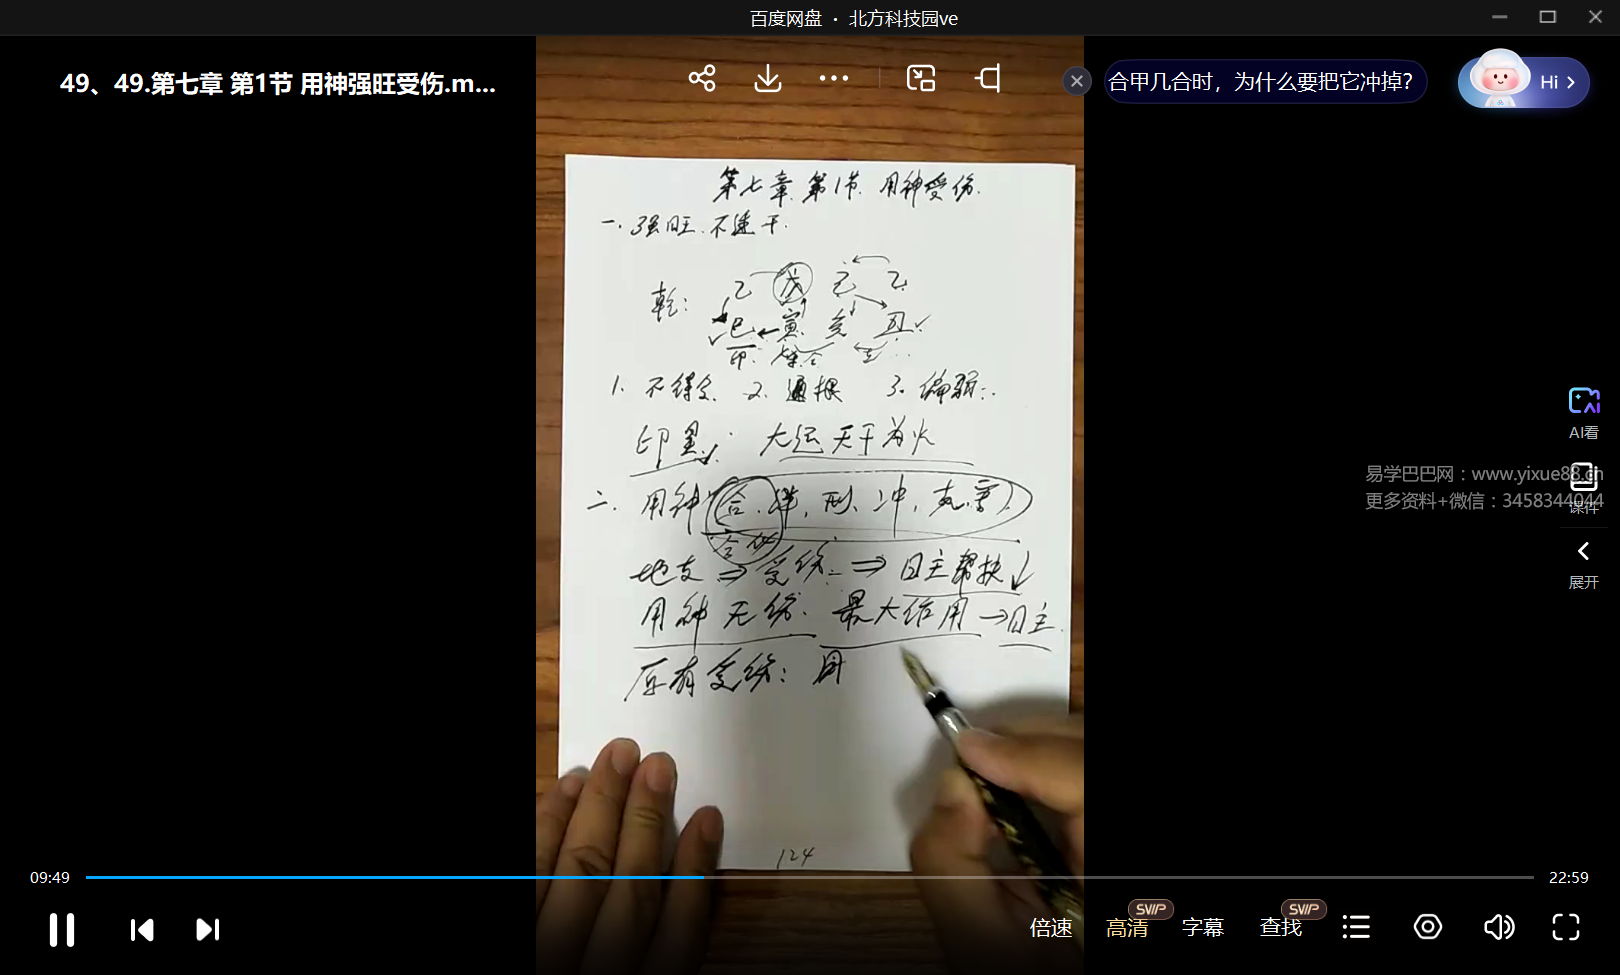 百度网盘 · 北方科技园ve
49、49.第七章 第1节 用神强旺受伤.m...
合甲几合时，为什么要把它冲掉?
Hi
第七章 第1节. 用神受伤.
一. 强旺. 不逢干.
乾: 乙 戊 己 乙
巳 寅 亥 丑
印.
1. 不得令. 2. 通根 3. 偏弱:.
印星: 大运天干为火
二. 用神(合. 绊, 刑、冲, 克.害)
合化
地支 ⇒ 受伤. ⇒ 日主帮扶↓
用神无伤. 最大作用→日主.
原有受伤: 用
124
AI看
易学巴巴网：www.yixue88.cn
更多资料+微信：3458344044
课件
展开
09:49
22:59
倍速
高清
SVIP
字幕
查找
SVIP